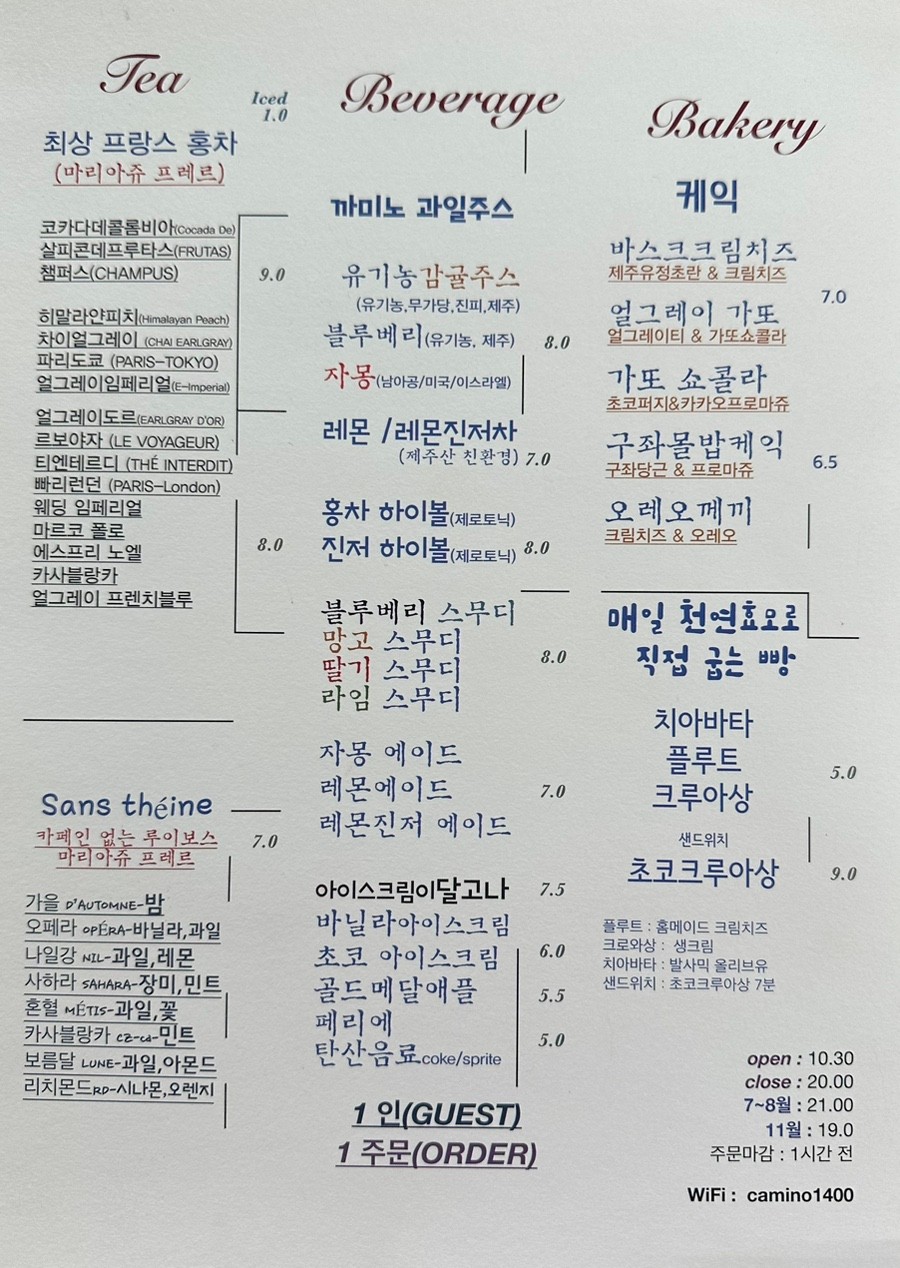 Tea
Iced
1.0
최상 프랑스 홍차
(마리아쥬 프레르)
코카다데콜롬비아(Cocada De)
살피콘데프루타스(FRUTAS)
챔퍼스(CHAMPUS)
9.0
히말라얀피치(Himalayan Peach)
차이얼그레이 (CHAI EARLGRAY)
파리도쿄 (PARIS-TOKYO)
얼그레이임페리얼(E-Imperial)
얼그레이도르(EARLGRAY D'OR)
르보야자 (LE VOYAGEUR)
티엔테르디 (THÉ INTERDIT)
빠리런던 (PARIS-London)
웨딩 임페리얼
마르코 폴로
에스프리 노엘
카사블랑카
얼그레이 프렌치블루
8.0
Sans théine
카페인 없는 루이보스
마리아쥬 프레르
7.0
가을 D'AUTOMNE-밤
오페라 OPÉRA-바닐라,과일
나일강 NIL-과일,레몬
사하라 SAHARA-장미,민트
혼혈 MÉTIS-과일,꽃
카사블랑카 CZ-CA-민트
보름달 LUNE-과일,아몬드
리치몬드RD-시나몬,오렌지
Beverage
까미노 과일주스
유기농감귤주스
(유기농,무가당,진피,제주)
블루베리(유기농, 제주)
8.0
자몽(남아공/미국/이스라엘)
레몬 /레몬진저차
(제주산 친환경) 7.0
홍차 하이볼(제로토닉)
진저 하이볼(제로토닉) 8.0
블루베리 스무디
망고 스무디
딸기 스무디
라임 스무디
8.0
자몽 에이드
레몬에이드
레몬진저 에이드
7.0
아이스크림이달고나 7.5
바닐라아이스크림
초코 아이스크림
6.0
골드메달애플
5.5
페리에
탄산음료coke/sprite
5.0
1 인(GUEST)
1 주문(ORDER)
Bakery
케익
바스크크림치즈
제주유정초란 & 크림치즈
7.0
얼그레이 가또
얼그레이티 & 가또쇼콜라
가또 쇼콜라
초코퍼지&카카오프로마쥬
구좌몰밥케익
구좌당근 & 프로마쥬
6.5
오레오께끼
크림치즈 & 오레오
매일 천연효모로
직접 굽는 빵
치아바타
플루트
크루아상
5.0
샌드위치
초코크루아상
9.0
플루트 : 홈메이드 크림치즈
크로와상 : 생크림
치아바타 : 발사믹 올리브유
샌드위치 : 초코크루아상 7분
open : 10.30
close : 20.00
7~8월 : 21.00
11월 : 19.0
주문마감 : 1시간 전
WiFi : camino1400